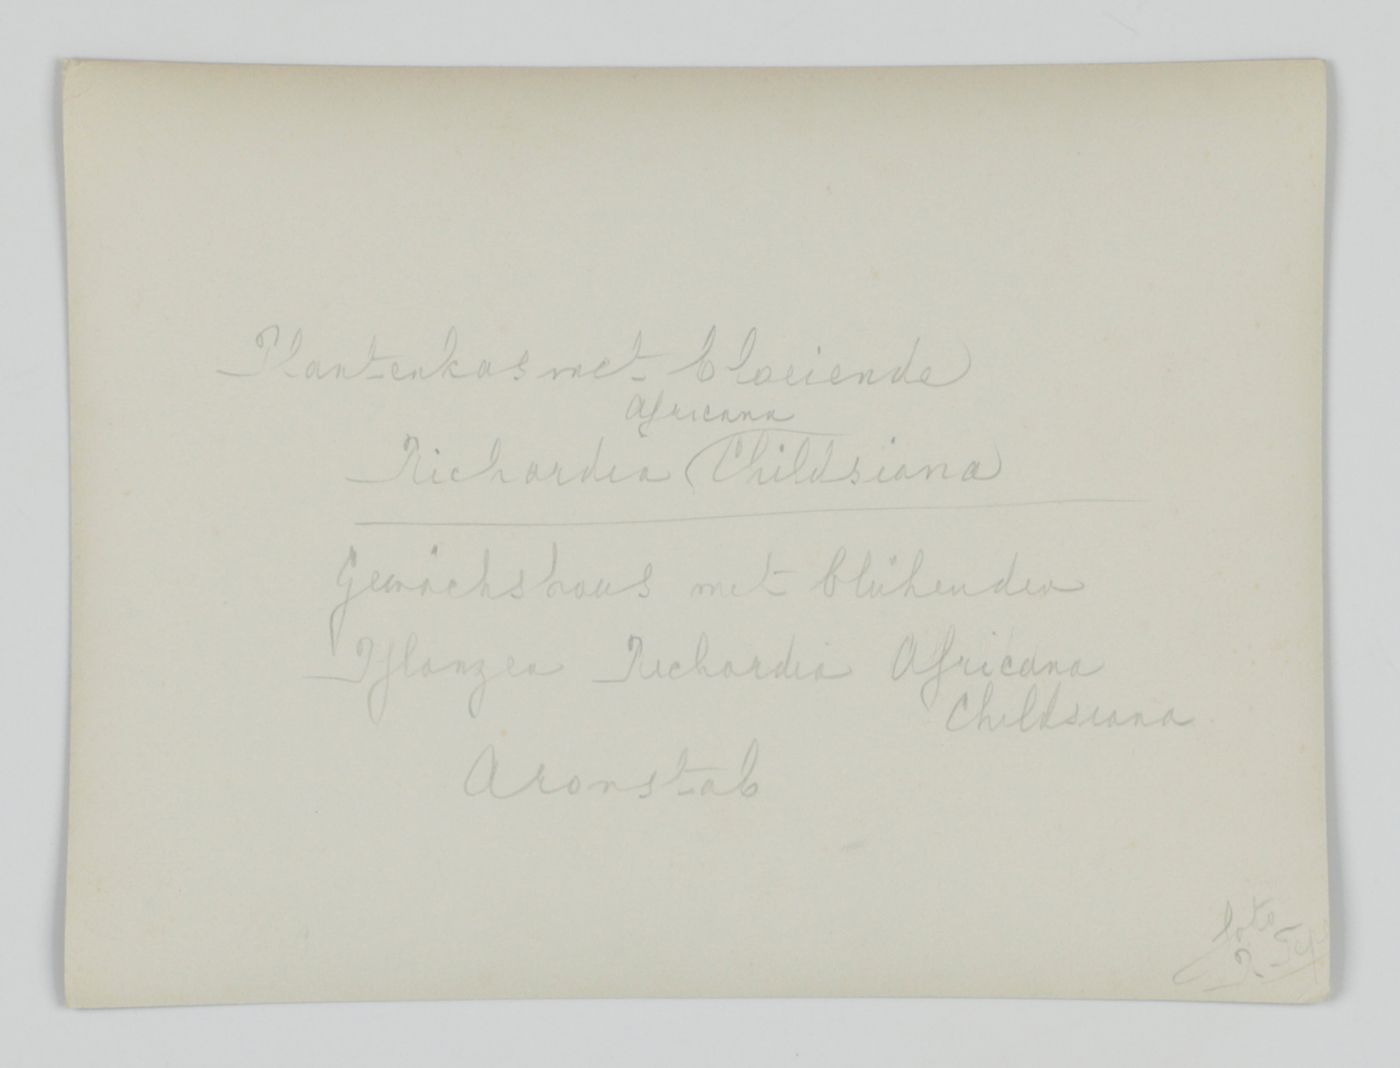 Plantenkas met bloeiende
Africana
Richardia (Childsiana)
Gewächshaus met blühenden
Pflanzen Richardia Africana
Childsiana
Aronstab
foto